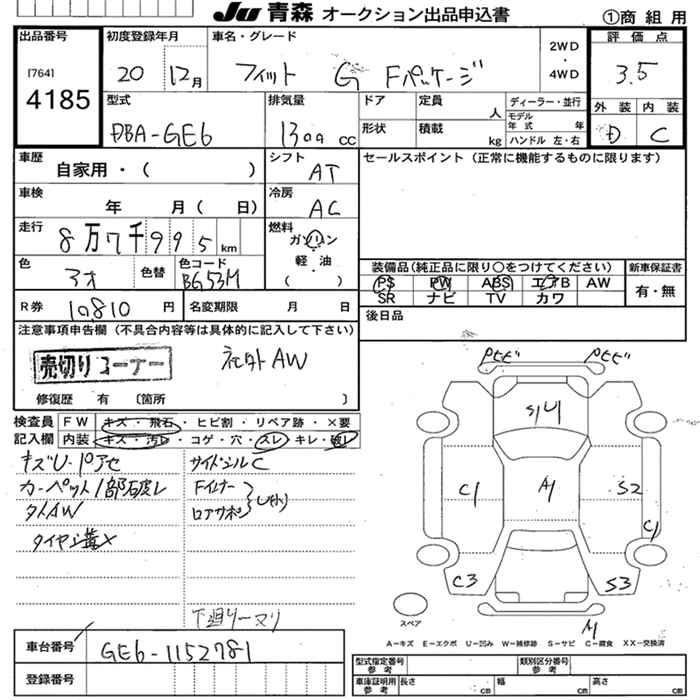 JU 青森 オークション出品申込書 ①商 組 用
出品番号
[764]
4185
初度登録年月
20 12月
車名・グレード
フィット G Fパッケージ
2WD
・
4WD
評 価 点
3.5
型式
DBA-GE6
排気量
1300 cc
ドア
定員 人
ディーラー・並行
モデル年式 年
形状
積載 kg
ハンドル 左・右
外 装 内 装
D C
車歴
自家用・( )
シフト
AT
セールスポイント (正常に機能するものに限ります)
車検
年 月( 日)
冷房
AC
走行
8万7千995 km
燃料
ガソリン
軽・油
( )
色
アオ
色替
色コード
BG53M
装備品(純正品に限り○をつけてください)
PS PW ABS エアB AW
SR ナビ TV カワ
新車保証書
有・無
R券
10,810 円
名変期限 月 日
後日品
注意事項申告欄 (不具合内容等は具体的に記入して下さい)
売切りコーナー
社外AW
修復歴 有 〔箇所 〕
検査員
記入欄
FW キズ・飛石・ヒビ割・リペア跡・×要
内装 キズ・汚レ・コゲ・穴・スレ・キレ・破レ
キズU・Pアセ
カーペット1部破レ
タイヤミゾ×
サイドシルC
Fインナー
ロアサポ
下廻リ
S/U
C1
A1
S2
C1
C3
S3
A1
スペア
A－キズ E－エクボ U－凹み W－補修跡 S－サビ C－腐食 XX－交換済
車台番号
GE6-1152781
登録番号
型式指定番号
参考
類別区分番号
参考
車庫証明用
参考
長さ cm
幅 cm
高さ cm